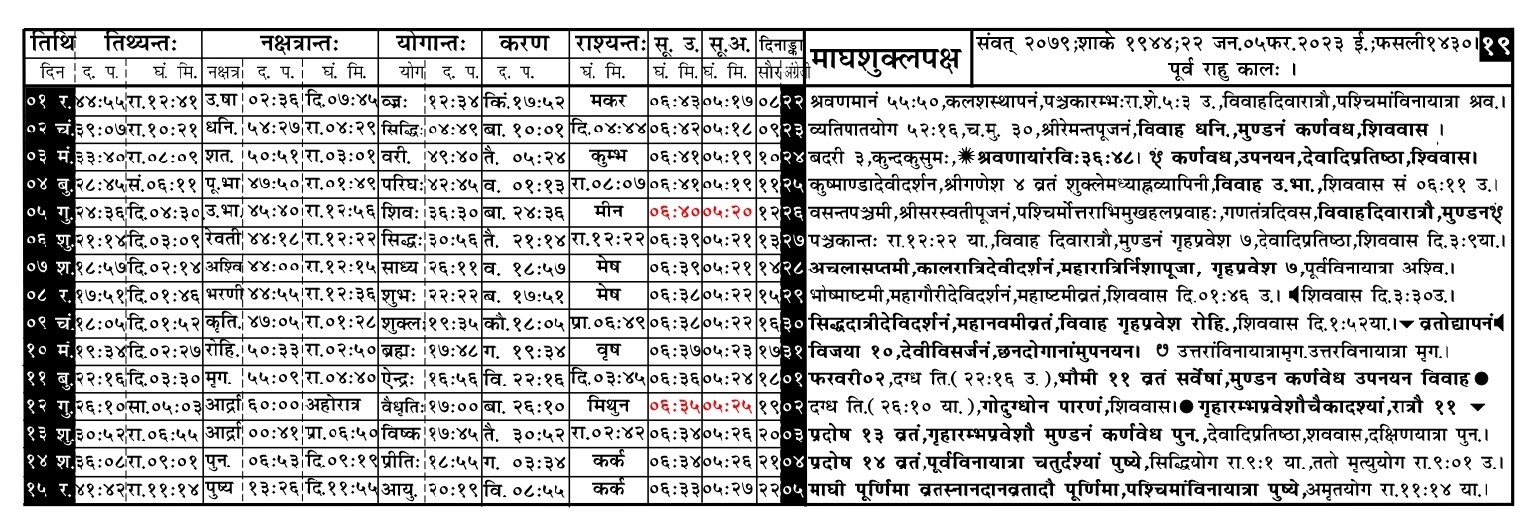 तिथि तिथ्यन्तः नक्षत्रान्तः योगान्तः करण राश्यन्तः सू. उ. सू.अ. दिनाङ्का माघशुक्लपक्ष संवत् २०७९;शाके १९४४;२२ जन.०५फर.२०२३ ई.;फसली१४३०। १९
दिन द. प. घं. मि. नक्षत्र द. प. घं. मि. योग द. प. द. प. घं. मि. घं. मि. घं. मि. सौर अंग्रेजी पूर्व राहु कालः ।
०१ र. ४४:५५ रा.१२:४१ उ.षा ०२:३६ दि.०७:४५ व्ज्रः १२:३४ किं.१७:५२ मकर ०६:४३ ०५:१७ ०८ २२ श्रवणमानं ५५:५०,कलशस्थापनं,पञ्चकारम्भःरा.शे.५:३ उ.,विवाहदिवारात्रौ,पश्चिमांविनायात्रा श्रव.।
०२ चं. ३९:०७ रा.१०:२१ धनि. ५४:२७ रा.०४:२९ सिद्धिः ०४:४९ बा. १०:०१ दि.०४:४४ ०६:४२ ०५:१८ ०९ २३ व्यतिपातयोग ५२:१६,च.मु. ३०,श्रीरेमन्तपूजनं,विवाह धनि.,मुण्डनं कर्णवध,शिववास ।
०३ मं. ३३:४० रा.०८:०९ शत. ५०:५१ रा.०३:०१ वरी. ४९:४० तै. ०५:२४ कुम्भ ०६:४१ ०५:१९ १० २४ बदरी ३,कुन्दकुसुमः,✷श्रवणायांरविः३६:४८। कर्णवध,उपनयन,देवादिप्रतिष्ठा,श्विवास।
०४ बु. २८:४५ सं.०६:११ पू.भा ४७:५० रा.०१:४९ परिघः ४२:४५ व. ०१:१३ रा.०८:०७ ०६:४१ ०५:१९ ११ २५ कुष्माण्डादेवीदर्शन,श्रीगणेश ४ व्रतं शुक्लेमध्याह्नव्यापिनी,विवाह उ.भा.,शिववास सं ०६:११ उ.।
०५ गु. २४:३६ दि.०४:३० उ.भा. ४५:४० रा.१२:५६ शिवः ३६:३० बा. २४:३६ मीन ०६:४० ०५:२० १२ २६ वसन्तपञ्चमी,श्रीसरस्वतीपूजनं,पश्चिर्मोत्तराभिमुखहलप्रवाहः,गणतंत्रदिवस,विवाहदिवारात्रौ,मुण्डन
०६ शु. २१:१४ दि.०३:०९ रेवती ४४:१८ रा.१२:२२ सिद्धः ३०:५६ तै. २१:१४ रा.१२:२२ ०६:३९ ०५:२१ १३ २७ पञ्चकान्तः रा.१२:२२ या.,विवाह दिवारात्रौ,मुण्डनं गृहप्रवेश ७,देवादिप्रतिष्ठा,शिववास दि.३:९या.।
०७ श. १८:५७ दि.०२:१४ अश्वि ४४:०० रा.१२:१५ साध्य २६:११ व. १८:५७ मेष ०६:३९ ०५:२१ १४ २८ अचलासप्तमी,कालरात्रिदेवीदर्शनं,महारात्रिर्निशापूजा, गृहप्रवेश ७,पूर्वविनायात्रा अश्वि.।
०८ र. १७:५१ दि.०१:४६ भरणी ४४:५५ रा.१२:३६ शुभः २२:२२ ब. १७:५१ मेष ०६:३८ ०५:२२ १५ २९ भोष्माष्टमी,महागौरीदेविदर्शनं,महाष्टमीव्रतं,शिववास दि.०१:४६ उ.। ◀शिववास दि.३:३०उ.।
०९ चं. १८:०५ दि.०१:५२ कृति. ४७:०५ रा.०१:२८ शुक्लः १९:३५ कौ.१८:०५ प्रा.०६:४९ ०६:३८ ०५:२२ १६ ३० सिद्धदात्रीदेविदर्शनं,महानवमीव्रतं,विवाह गृहप्रवेश रोहि.,शिववास दि.१:५२या.।▼ व्रतोद्यापनं◀
१० मं. १९:३४ दि.०२:२७ रोहि. ५०:३३ रा.०२:५० ब्रह्मः १७:४८ ग. १९:३४ वृष ०६:३७ ०५:२३ १७ ३१ विजया १०,देवीविसर्जनं,छनदोगानांमुपनयन। उत्तरांविनायात्रामृग.उत्तरविनायात्रा मृग.।
११ बु. २२:१६ दि.०३:३० मृग. ५५:०९ रा.०४:४० ऐन्द्रः १६:५६ वि. २२:१६ दि.०३:४५ ०६:३६ ०५:२४ १८ ०१ फरवरी०२,दग्ध ति.( २२:१६ उ.),भौमी ११ व्रतं सर्वेषां,मुण्डन कर्णवेध उपनयन विवाह●
१२ गु. २६:१० सा.०५:०३ आर्द्रा ६०:०० अहोरात्र वैधृतिः १७:०० बा. २६:१० मिथुन ०६:३५ ०५:२५ १९ ०२ दग्ध ति.( २६:१० या.),गोदुग्धोन पारणं,शिववास।●गृहारम्भप्रवेशौचैकादश्यां,रात्रौ ११ ▼
१३ शु. ३०:५२ रा.०६:५५ आर्द्रा ००:४१ प्रा.०६:५० विष्क १७:४५ तै. ३०:५२ रा.०२:४२ ०६:३४ ०५:२६ २० ०३ प्रदोष १३ व्रतं,गृहारम्भप्रवेशौ मुण्डनं कर्णवेध पुन.,देवादिप्रतिष्ठा,शववास,दक्षिणयात्रा पुन.।
१४ श. ३६:०८ रा.०९:०१ पुन. ०६:५३ दि.०९:१९ प्रीतिः १८:५५ ग. ०३:३४ कर्क ०६:३४ ०५:२६ २१ ०४ प्रदोष १४ व्रतं,पूर्वविनायात्रा चतुर्दश्यां पुष्ये,सिद्धियोग रा.९:१ या.,ततो मृत्युयोग रा.९:०१ उ.।
१५ र. ४१:४२ रा.११:१४ पुष्य १३:२६ दि.११:५५ आयु. २०:१९ वि. ०८:५५ कर्क ०६:३३ ०५:२७ २२ ०५ माघी पूर्णिमा व्रतस्नानदानव्रतादौ पूर्णिमा,पश्चिमांविनायात्रा पुष्ये,अमृतयोग रा.११:१४ या.।